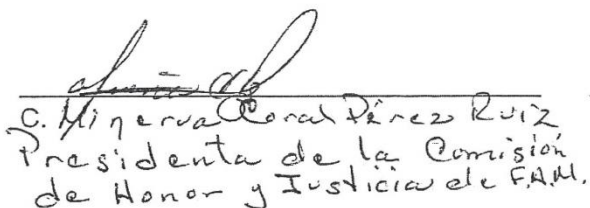 C. Minerva Coral Pérez Ruiz
Presidenta de la Comisión
de Honor y Justicia de F.A.M.